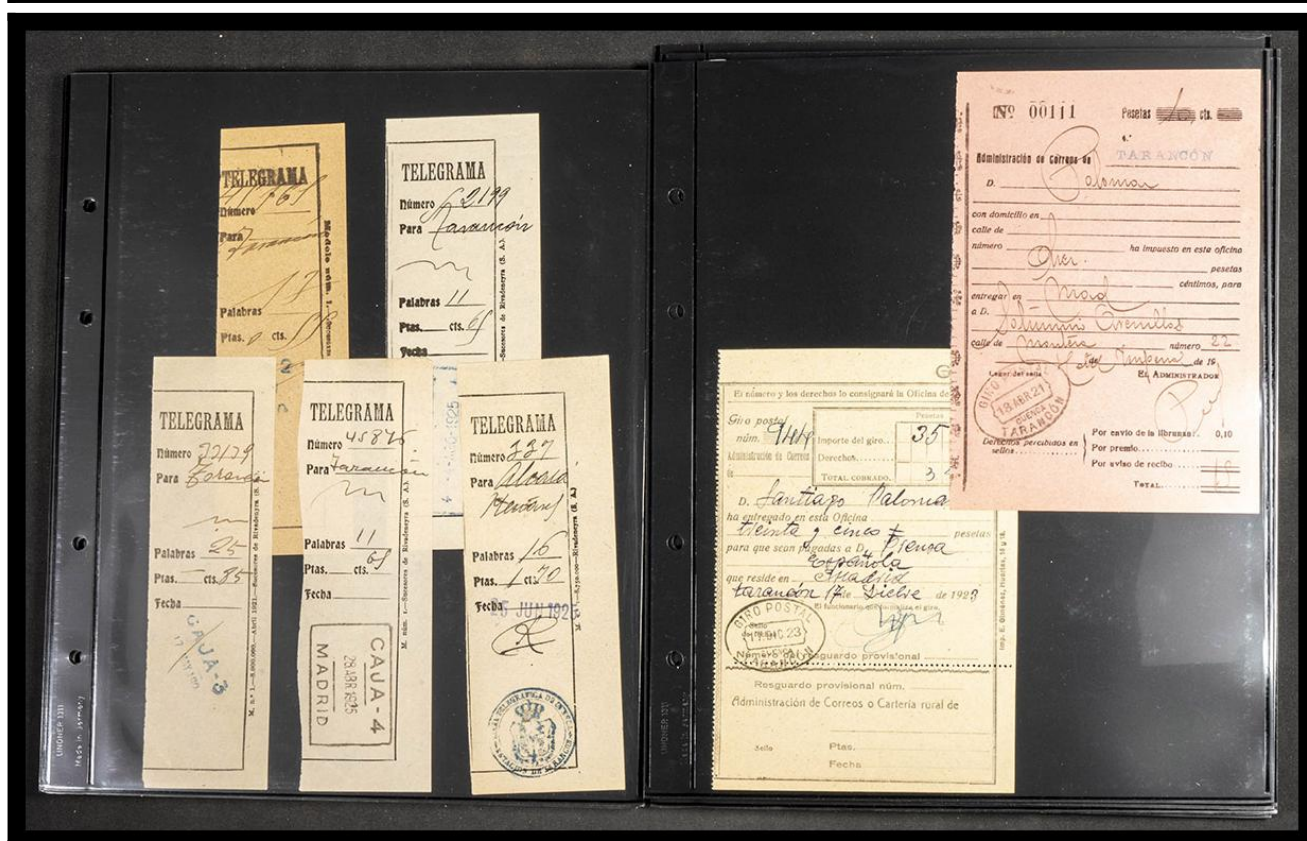 TELEGRAMA
Número
Para Tarancón
Palabras 17
Ptas. cts.
Modelo núm. 1.
TELEGRAMA
Número 62199
Para Tarancón
Palabras 11
Ptas. cts. 65
Fecha
Sucesores de Rivadeneyra (S. A.)
TELEGRAMA
Número
Para
Palabras 25
Ptas. — cts. 85
Fecha
CAJA-3
M. n.º 1.—8.000.000.—Abril 1921.—Sucesores de Rivadeneyra (S.
TELEGRAMA
Número 45876
Para Tarancón
Palabras 11
Ptas. cts. 65
Fecha
CAJA-4
28 ABR 1925
MADRID
M. núm. 1.—Sucesores de Rivadeneyra (S. A.)
TELEGRAMA
Número 227
Para Alcalá
Henares
Palabras 16
Ptas. 1 cts. 70
Fecha
JUN 192
Rivadeneyra (S. A.)
LINDNER
El número y los derechos lo consignará la Oficina de
Giro postal
núm.
Administración de Correos
de
Pesetas
Importe del giro.. 35
Derechos
TOTAL COBRADO. 35
D. Santiago Paloma
ha entregado en esta Oficina
treinta y cinco pesetas
para que sean pagadas a D. Prensa
Española
que reside en Madrid
Tarancón 17 de Dicbre de 1923
El funcionario que formaliza el giro,
GIRO POSTAL
17 DIC 23
TARANCÓN
Número del resguardo provisional
Resguardo provisional núm.
Administración de Correos o Cartería rural de
Sello Ptas.
Fecha
Nº 00111 Pesetas 10 cts.
Administración de Correos de TARANCÓN
D. Palomar
con domicilio en
calle de
número ha impuesto en esta oficina
Diez pesetas
céntimos, para
entregar en Mad
a D. Saturnino
calle de Montera número 22
de 19
Lugar del sello EL ADMINISTRADOR
GIRO
18 ABR 21
CUENCA
TARANCÓN
Derechos percibidos en
sellos
Por envío de la libranza.. 0,10
Por premio
Por aviso de recibo
TOTAL
LINDNER